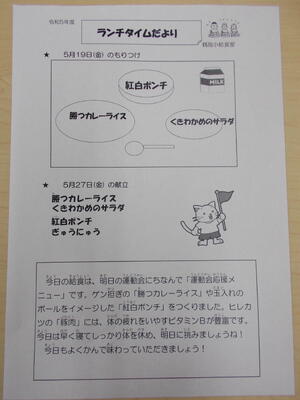 令和5年度
ランチタイムだより
小給食室
★ 5月19日(金) のもりつけ
紅白ポンチ
MILK
勝つカレーライス
くきわかめのサラダ
★ 5月27日(金) の献立
勝つカレーライス
くきわかめのサラダ
紅白ポンチ
ぎゅうにゅう
今日の給食は、明日の運動会にちなんで「運動会応援メ
ニュー」です。ゲン担ぎの「勝つカレーライス」や玉入れの
ボールをイメージした「紅白ポンチ」をつくりました。ヒレカ
ツの「豚肉」には、体の疲れをいやすビタミンBが豊富です。
今日は早く寝てしっかり体を休め、明日に挑みましょうね！
今日もよくかんで味わっていただきましょう！